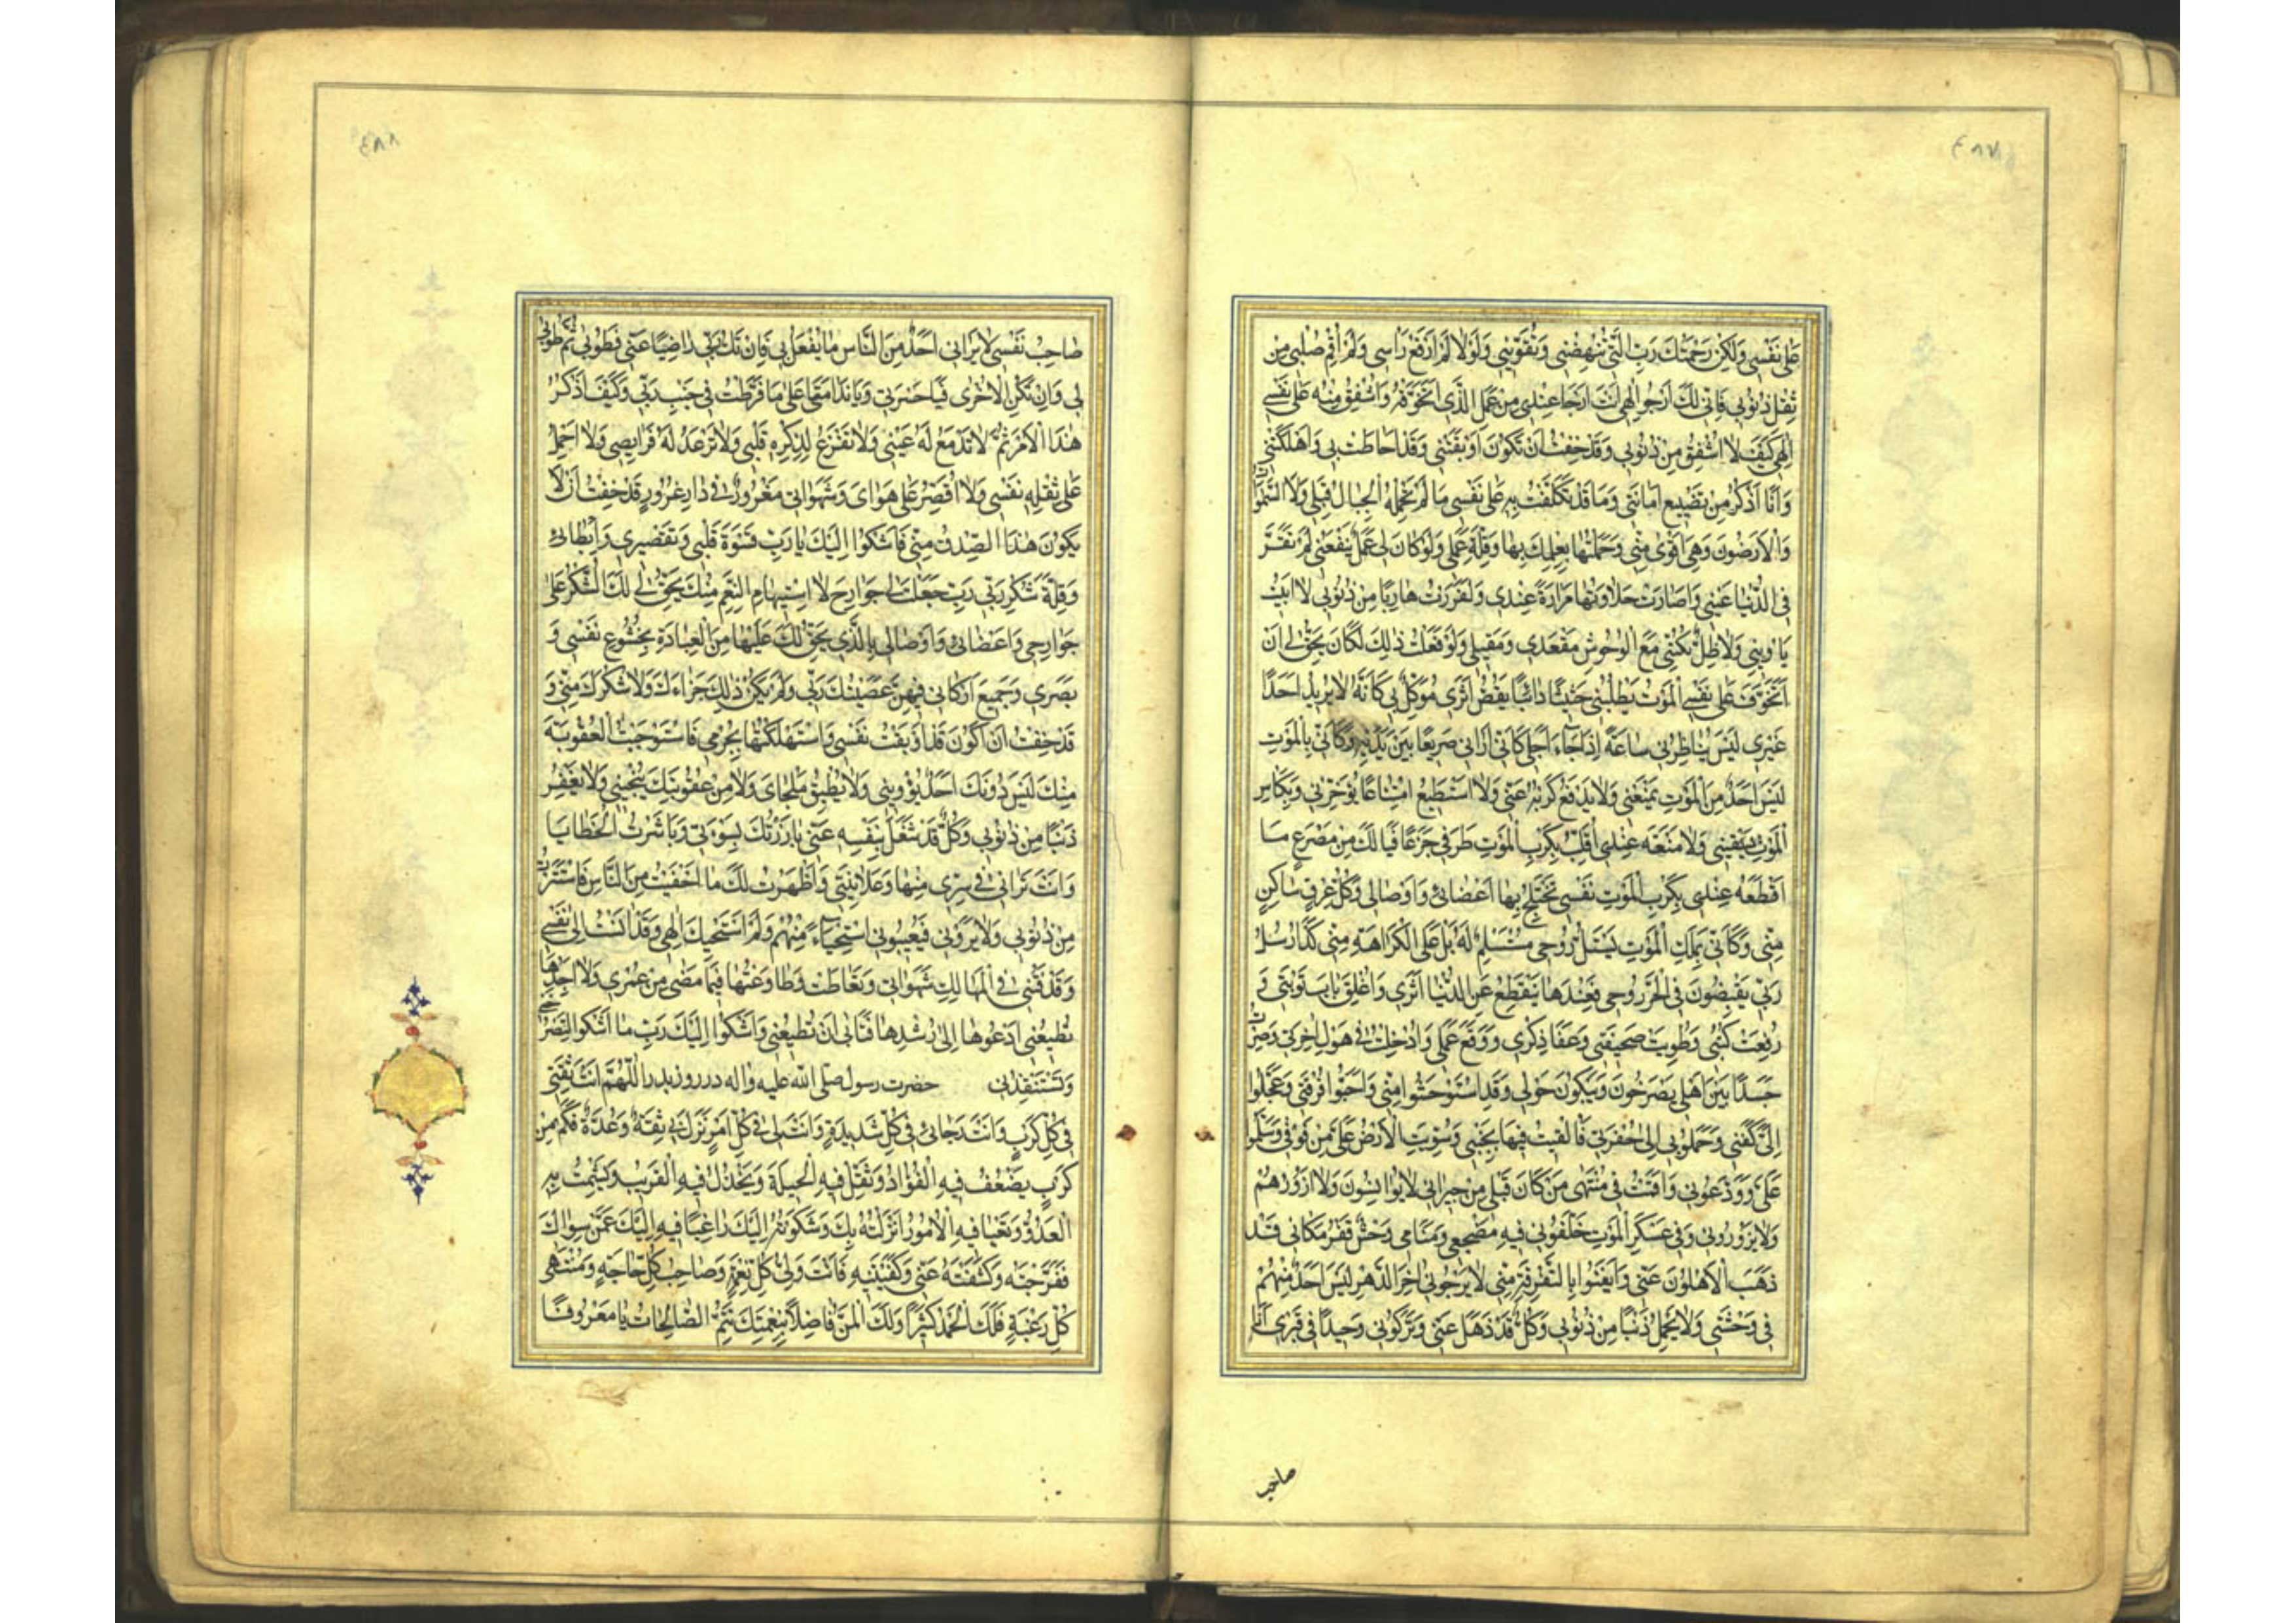 ٤٨٧
عَلٰى نَفْسِى وَلٰكِنْ رَحْمَتُكَ رَبِّ الَّتِى تُنْهِضُنِى وَتُقَوِّيْنِى وَلَوْلَا لَمْ اَرْفَعْ رَاْسِى وَلَمْ اُقِمْ صُلْبِى مِنْ
ثِقْلِ ذُنُوْبِى فَاِنِّى لَكَ اَرْجُوْ اِلٰهِى اَنْتَ اَرْجَا عِنْدِى مِنْ عَمَلِى الَّذِى اَتَخَوَّفُهُ وَاُشْفِقُ مِنْهُ عَلٰى نَفْسِى
اِلٰهِى كَيْفَ لَا اُشْفِقُ مِنْ ذُنُوْبِى وَقَدْ خِفْتُ اَنْ تَكُوْنَ اَوْبَقَتْنِى وَقَدْ اَحَاطَتْ بِى وَاَهْلَكَتْنِى
وَاَنَا اَذْكُرُ مِنْ تَضْيِيعِ اَمَانَتِى وَمَا قَدْ تَكَلَّفْتُ بِهِ عَلٰى نَفْسِى مَا لَمْ تَحْمِلْهُ الْجِبَالُ قَبْلِى وَلَا السَّمٰوَاتُ
وَالْاَرَضُوْنَ وَهِىَ اَقْوٰى مِنِّى وَحَمَلْتُهَا بِعِلْمِكَ بِهَا وَقِلَّةِ عَمَلِى وَلَوْ كَانَ لِى عَمَلٌ يَنْفَعُنِى لَمْ تَقَرَّ
فِى الدُّنْيَا عَيْنِى وَاَصَارَتْ حَلَاوَتُهَا مَرَارَةً عِنْدِى وَلَفَرَرْتُ هَارِبًا مِنْ ذُنُوْبِى لَا بَيْتَ
يَاْوِيْنِى وَلَا ظِلَّ يُكِنُّنِى مَعَ الْوُحُوْشِ مَقْعَدِى وَمَقِيْلِى وَلَوْ فَعَلْتُ ذٰلِكَ لَكَانَ يَحِقُّ لِى اَنْ
اَتَخَوَّفَ عَلٰى نَفْسِى الْمَوْتُ يَطْلُبُنِى حَثِيْثًا دَائِبًا يَقُصُّ اَثَرِى مُوَكَّلٌ بِى كَاَنَّهُ لَا يُرِيْدُ اَحَدًا
غَيْرِى لَيْسَ يُنَاظِرُنِى سَاعَةً اِذَا جَاءَ اَجَلِى كَاَنِّى اَرَانِى صَرِيْعًا بَيْنَ يَدَيْهِ وَكَاَنِّى بِالْمَوْتِ
لَيْسَ اَحَدٌ مِنَ الْمَوْتِ يَمْنَعُنِى وَلَا يَدْفَعُ كَرْبَهُ عَنِّى وَلَا اَسْتَطِيْعُ امْتِنَاعًا يُؤَخِّرُنِى وَبِكَاْسِ
الْمَوْتِ يَسْقِيْنِى وَلَا مَنَعَةَ عِنْدِى اُقَلِّبُ بِكَرْبِ الْمَوْتِ طَرْفِى جَزَعًا فَيَا لَكَ مِنْ مَصْرَعٍ مَا
اَفْظَعَهُ عِنْدِى بِكَرْبِ الْمَوْتِ نَفْسِى تَخْتَلِجُ بِهَا اَعْضَائِى وَاَوْصَالِى وَكُلُّ عِرْقٍ سَاكِنٍ
مِنِّى وَكَاَنِّى بِمَلَكِ الْمَوْتِ يَسْتَلُّ رُوْحِى مُسْتَسْلِمٌ لَهُ بَلْ عَلَى الْكَرَاهَةِ مِنِّى كَذَا رُسُلُ
رَبِّى يَقْبِضُوْنَ فِى الْحَرِّ رُوْحِى فَعِنْدَهَا يَنْقَطِعُ عَنِ الدُّنْيَا اَثَرِى وَاُغْلِقَ بَابُ تَوْبَتِى وَ
رُفِعَتْ كُتُبِى وَطُوِيَتْ صَحِيْفَتِى وَعَفَا ذِكْرِى وَوَقَعَ عَمَلِى وَاُدْخِلْتُ فِى هَوْلِ اٰخِرَتِى وَصِرْتُ
جَسَدًا بَيْنَ اَهْلِى يَصْرُخُوْنَ وَيَبْكُوْنَ حَوْلِى وَقَدِ اسْتَوْحَشُوْا مِنِّى وَاَحَبُّوْا فُرْقَتِى وَعَجَّلُوْا
اِلٰى كَفَنِى وَحَمَلُوْنِى اِلٰى حُفْرَتِى فَاُلْقِيْتُ فِيْهَا بِجَنْبِى وَسُوِّيَتِ الْاَرْضُ عَلَىَّ مِنْ فَوْقِى وَسَلَّمُوْا
عَلَىَّ وَوَدَّعُوْنِى وَاَقَمْتُ فِى مُنْتَهٰى مَنْ كَانَ قَبْلِى مِنْ جِيْرَانٍ لَا يُوَانِسُوْنَ وَلَا اَزُوْرُهُمْ
وَلَا يَزُوْرُوْنِى وَفِى عَسْكَرِ الْمَوْتٰى خَلَّفُوْنِى فِيْهِ مَضْجَعِى وَمَنَامِى وَحْشٌ قَفْرٌ مَكَانِى قَدْ
ذَهَبَ الْاَهْلُوْنَ عَنِّى وَاَيْقَنُوْا بِالتَّفْرِقَةِ مِنِّى لَا يَرْجُوْنِى اٰخِرَ الدَّهْرِ لَيْسَ اَحَدٌ مِنْهُمْ
فِى وَحْشَتِى وَلَا يَحْمِلُ ذَنْبًا مِنْ ذُنُوْبِى وَكُلٌّ قَدْ ذَهَلَ عَنِّى وَتَرَكُوْنِى وَحِيْدًا فِى قَبْرِى اَنَا
صاحب
٤٨٨
صَاحِبُ نَفْسِى لَا يَرَانِى اَحَدٌ مِنَ النَّاسِ مَا يُفْعَلُ بِى فَاِنْ تَكُ رَبِّى رَاضِيًا عَنِّى فَطُوْبٰى ثُمَّ طُوْبٰى
لِى وَاِنْ تَكُنِ الْاُخْرٰى فَيَا حَسْرَتِى وَيَا نَدَامَتَا عَلٰى مَا فَرَّطْتُ فِى جَنْبِ رَبِّى وَكَيْفَ اَذْكُرُ
هٰذَا الْاَمْرَ ثُمَّ لَا تَدْمَعُ لَهُ عَيْنِى وَلَا تَفْزَعُ لِذِكْرِهِ قَلْبِى وَلَا تَرْعَدُ لَهُ فَرَايِصِى وَلَا اَحْمِلُ
عَلٰى ثِقْلِهِ نَفْسِى وَلَا اُقَصِّرُ عَلٰى هَوَاىَ وَشَهَوَاتِى مَغْرُوْرٌ فِى دَارِ غُرُوْرٍ قَدْ خِفْتُ اَنْ لَا
يَكُوْنَ هٰذَا الصِّدْقُ مِنِّى فَاَشْكُوْا اِلَيْكَ يَا رَبِّ قَسْوَةَ قَلْبِى وَتَقْصِيْرِى وَاِبْطَائِى
وَقِلَّةَ شُكْرِى رَبِّى رَبِّ جَعَلْتَ لِى جَوَارِحَ لَا اسْتِيْهَامِ النِّعَمِ مِنْكَ يَحِقُّ لِى لَكَ الشُّكْرُ عَلٰى
جَوَارِحِى وَاَعْضَائِى وَاَوْصَالِى بِالَّذِى يَحِقُّ لَكَ عَلَيْهَا مِنَ الْعِبَادَةِ بِخُشُوْعِ نَفْسِى وَ
بَصَرِى وَجَمِيْعِ اَرْكَانِى فَبِهِنَّ عَصَيْتُكَ رَبِّى وَلَمْ يَكُنْ ذٰلِكَ جَزَاءَكَ وَلَا شُكْرَكَ مِنِّى وَ
قَدْ خِفْتُ اَنْ اَكُوْنَ قَدْ اَوْبَقْتُ نَفْسِى وَاسْتَهْلَكْتُهَا بِجُرْمِى فَاسْتَوْجَبْتُ الْعُقُوْبَةَ
مِنْكَ لَيْسَ دُوْنَكَ اَحَدٌ يُؤْوِيْنِى وَلَا يُطِيْقُ مَلْجَاىَ وَلَا مِنْ عُقُوْبَتِكَ يُنْجِيْنِى وَلَا يَغْفِرُ
ذَنْبًا مِنْ ذُنُوْبِى وَكُلٌّ قَدْ شُغِلَ بِنَفْسِهِ عَنِّى بَارَزْتُكَ بِسَوْءَتِى وَبَاشَرْتُ الْخَطَايَا
وَاَنْتَ تَرَانِى فِى سِرِّى مِنْهَا وَعَلَانِيَتِى وَاَظْهَرْتُ لَكَ مَا اَخْفَيْتُ مِنَ النَّاسِ فَاسْتَتَرْتُ
مِنْ ذُنُوْبِى وَلَا يَرَوْنِى فَيَعِيْبُوْنِى اسْتِحْيَاءً مِنْهُمْ وَلَمْ اَسْتَحْيِكَ اِلٰهِى وَقَدْ اَنِسْتُ اِلٰى نَفْسِى
وَقَذَفَتْنِى فِى الْمَهَالِكِ شَهَوَاتِى وَتَعَاطَتْ وَطَاوَعْتُهَا فِيْمَا مَضٰى مِنْ عُمْرِى وَلَا اَجِدُهَا
تُطِيْعُنِى اَدْعُوْهَا اِلٰى رُشْدِهَا فَتَاْبٰى اَنْ تُطِيْعَنِى وَاَشْكُوْا اِلَيْكَ رَبِّ مَا اَشْكُوْ لِتَصْرُخَنِى
وَتَسْتَنْقِذَنِى حضرت رسول صلى الله عليه واله در روز بدر اَللّٰهُمَّ اَنْتَ ثِقَتِى
فِى كُلِّ كَرْبٍ وَاَنْتَ رَجَائِى فِى كُلِّ شَدِيْدَةٍ وَاَنْتَ لِى فِى كُلِّ اَمْرٍ نَزَلَ بِى ثِقَةٌ وَعُدَّةٌ فَكَمْ مِنْ
كَرْبٍ يَضْعُفُ فِيْهِ الْفُؤَادُ وَتَقِلُّ فِيْهِ الْحِيْلَةُ وَيَخْذُلُ فِيْهِ الْقَرِيْبُ وَيَشْمَتُ بِهِ
الْعَدُوُّ وَتَعْيَا فِيْهِ الْاُمُوْرُ اَنْزَلْتُهُ بِكَ وَشَكَوْتُهُ اِلَيْكَ رَاغِبًا فِيْهِ اِلَيْكَ عَمَّنْ سِوَاكَ
فَفَرَّجْتَهُ وَكَشَفْتَهُ عَنِّى وَكَفَيْتَنِيْهِ فَاَنْتَ وَلِىُّ كُلِّ نِعْمَةٍ وَصَاحِبُ كُلِّ حَاجَةٍ وَمُنْتَهٰى
كُلِّ رَغْبَةٍ فَلَكَ الْحَمْدُ كَثِيْرًا وَلَكَ الْمَنُّ فَاضِلًا بِنِعْمَتِكَ تَتِمُّ الصَّالِحَاتُ يَا مَعْرُوْفًا